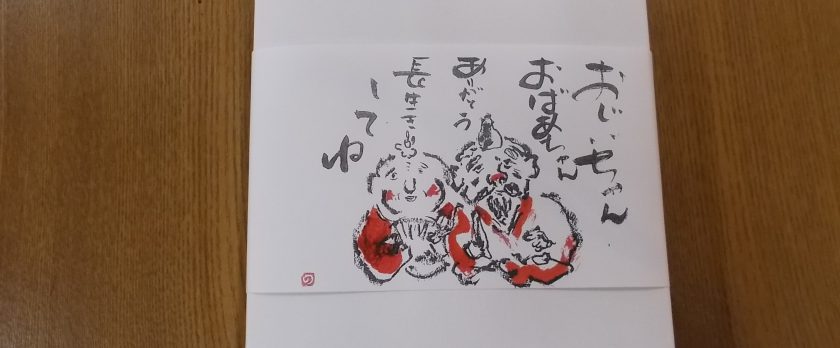 おじいちゃん
おばあちゃん
ありがとう
長生き
してね
の